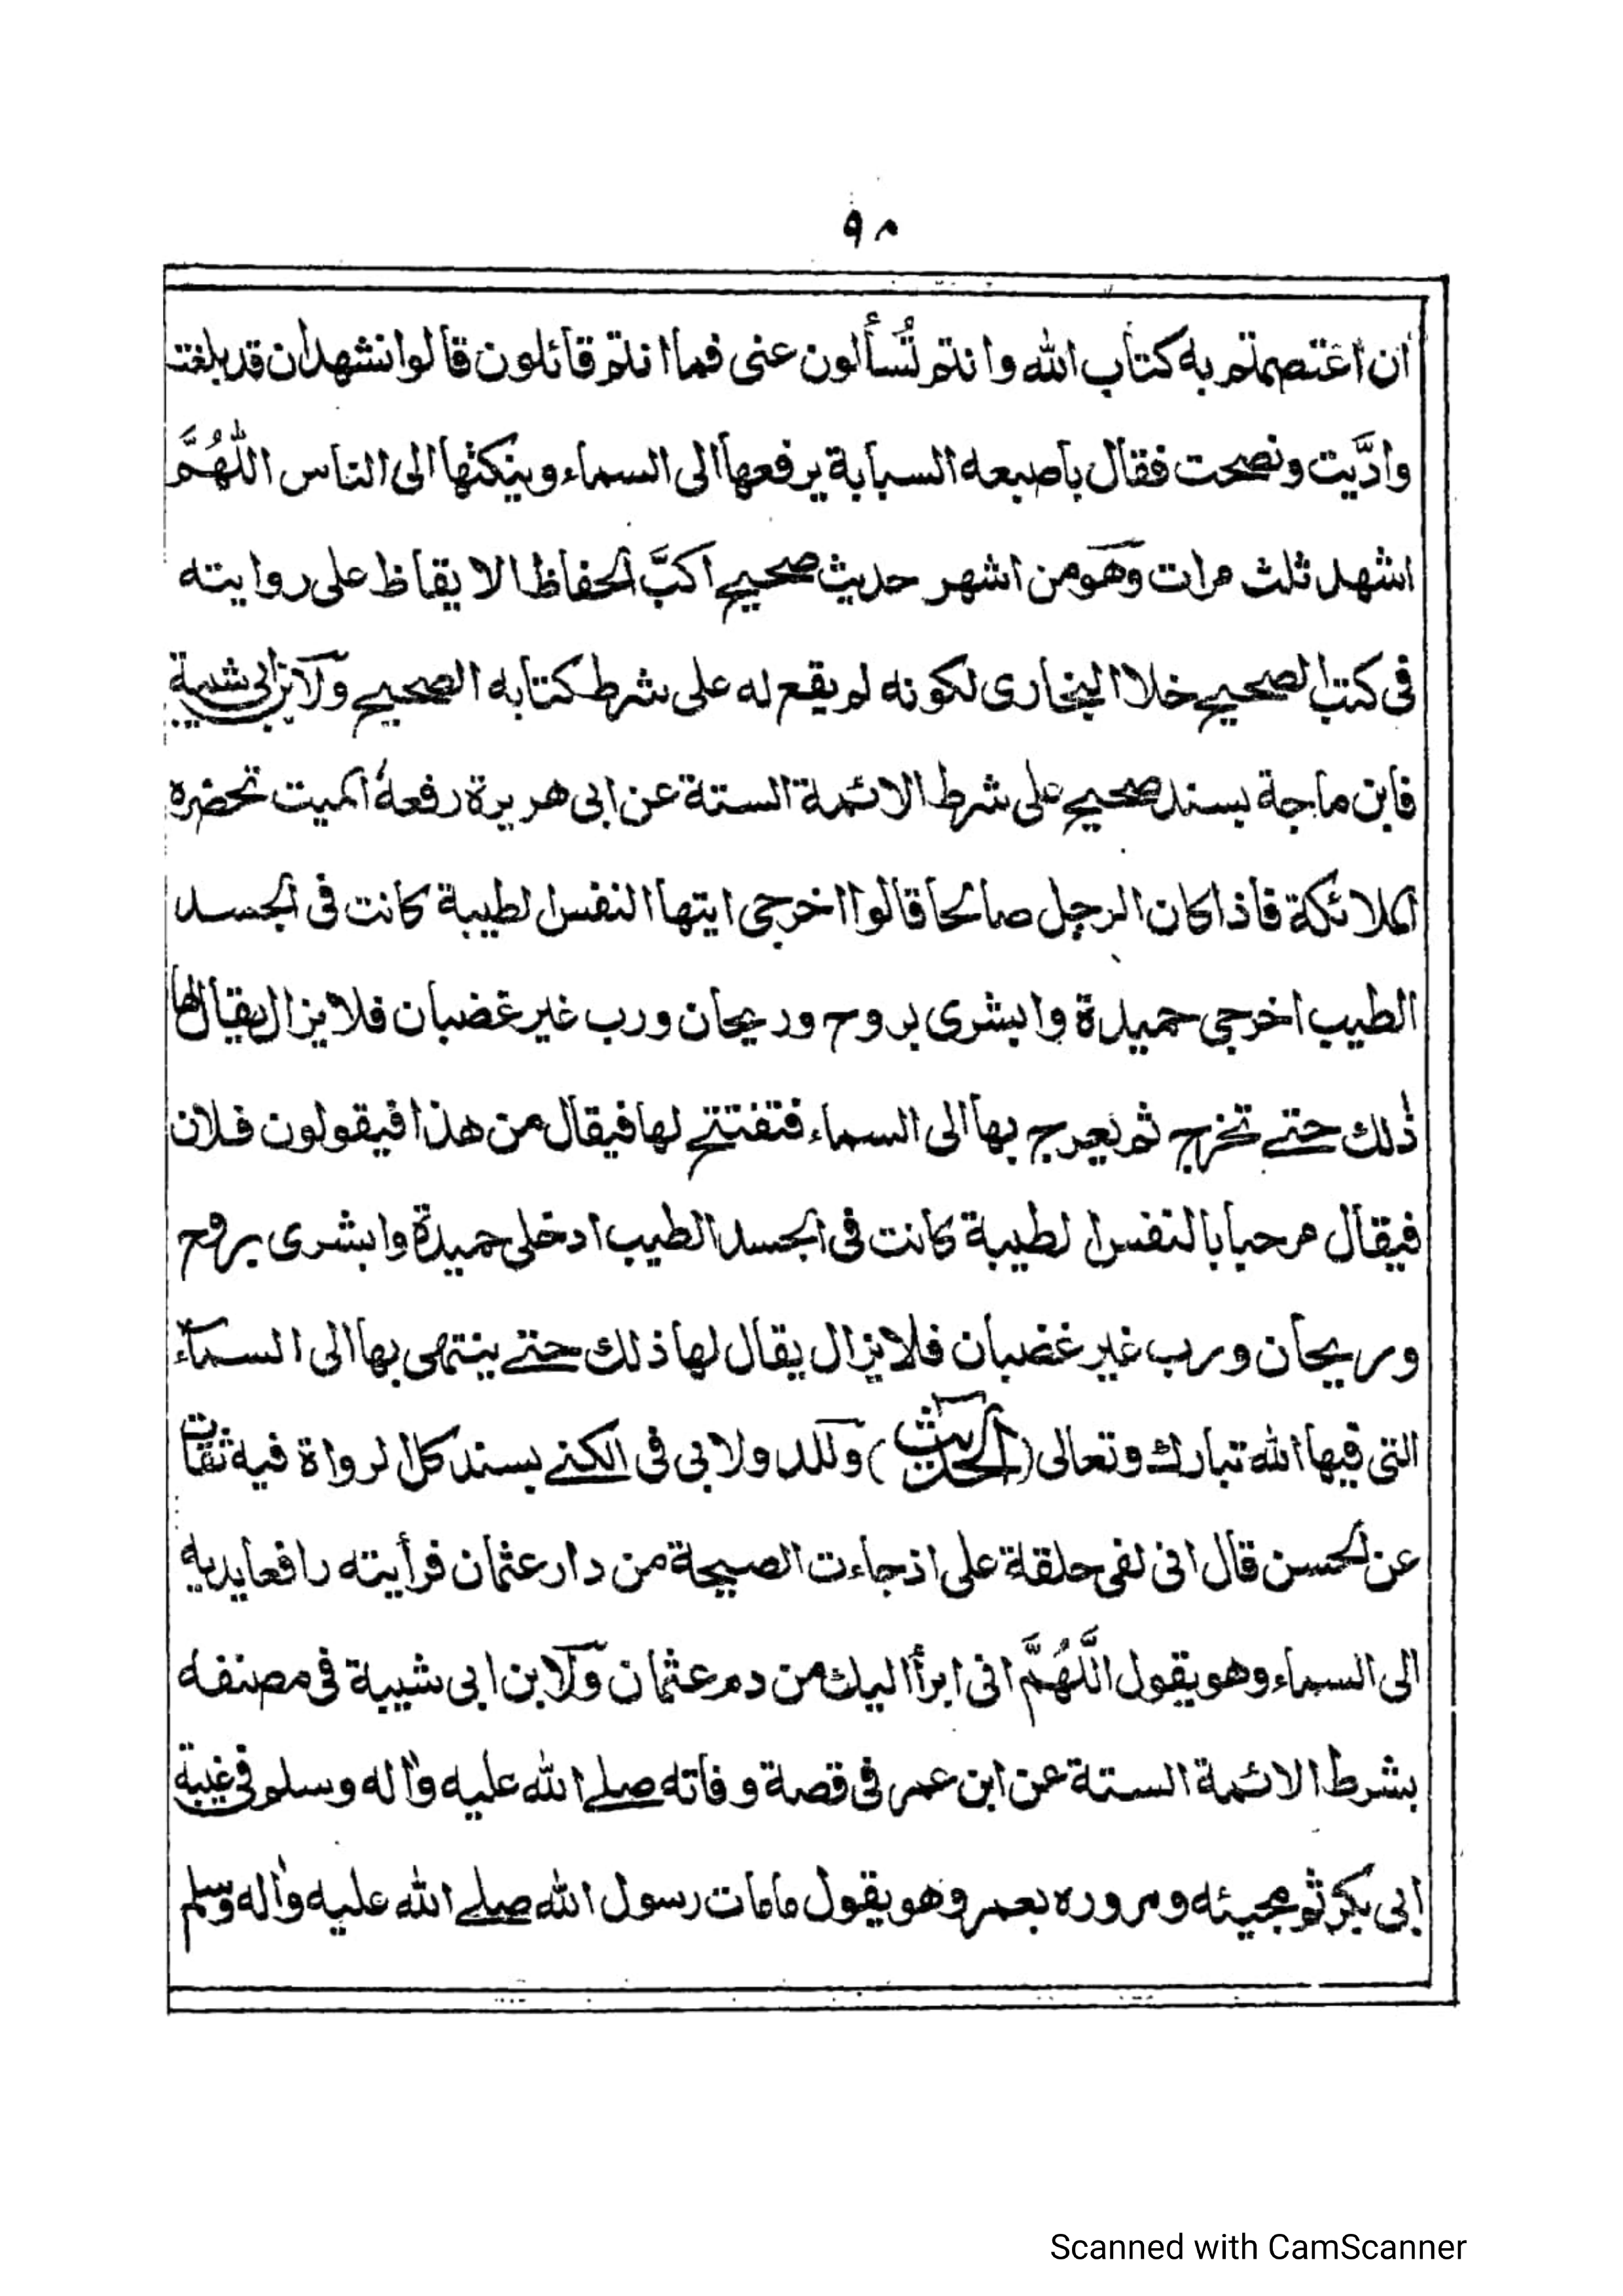 ٩٨
ان اعتصمتم به كتاب الله وانتم تُسأَلون عنى فما انتم قائلون قالوا نشهد ان قد بلغت
وادَّيت ونصحت فقال باصبعه السبابة يرفعها الى السماء وينكثها الى الناس اللّٰهُمَّ
اشهد ثلث مرات وهو من اشهر حديث صحيح اكبَّ الحفاظ الايقاظ على روايته
فى كتب الصحيح خلا البخارى لكونه لم يقع له على شرط كتابه الصحيح ولابن ابى شيبة
فابن ماجة بسند صحيح على شرط الائمة الستة عن ابى هريرة رفعه الميت تحضره
الملائكة فاذا كان الرجل صالحا قالوا اخرجى ايتها النفس الطيبة كانت فى الجسد
الطيب اخرجى حميدة وابشرى بروح وريحان ورب غير غضبان فلا يزال يقال لها
ذٰلك حتے تخرج ثم يعرج بها الى السماء فتفتتح لها فيقال من هذا فيقولون فلان
فيقال مرحبا بالنفس الطيبة كانت فى الجسد الطيب ادخلى حميدة وابشرى بروح
وريحان ورب غير غضبان فلا يزال يقال لها ذلك حتے ينتهى بها الى السماء
التى فيها الله تبارك وتعالى (الحديث) وللدولابى فى الكنے بسند كل الرواة فيه ثقات
عن الحسن قال انى لفى حلقة على اذ جاءت الصيحة من دار عثمان فرأيته رافعا يديه
الى السماء وهو يقول اللَّهُمَّ انى ابرأ اليك من دم عثمان ولابن ابى شيبة فى مصنفه
بشرط الائمة الستة عن ابن عمر فى قصة وفاته صلے الله عليه واٰله وسلم فى غيبة
ابى بكر ثم مجيئه ومروره بعمر وهو يقول مامات رسول الله صلے الله عليه واٰله وسلم
Scanned with CamScanner